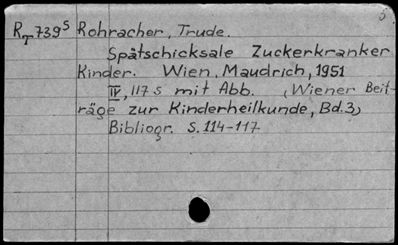 5
R_T 739⁵ Rohracher, Trude.
Spätschicksale Zuckerkranker
Kinder. Wien, Maudrich, 1951
IV, 117 S mit Abb. (Wiener Beit-
räge zur Kinderheilkunde, Bd.3)
Bibliogr. S. 114-117